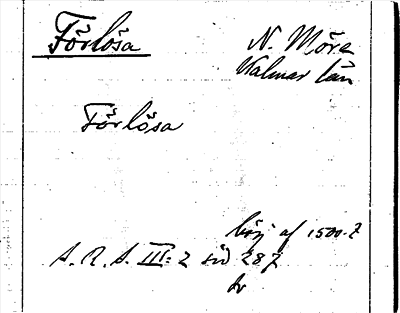 Förlösa
N. Möre
Kalmar län
Förlösa
börj af 1500-t
A. R. A. III: 2 sid 287